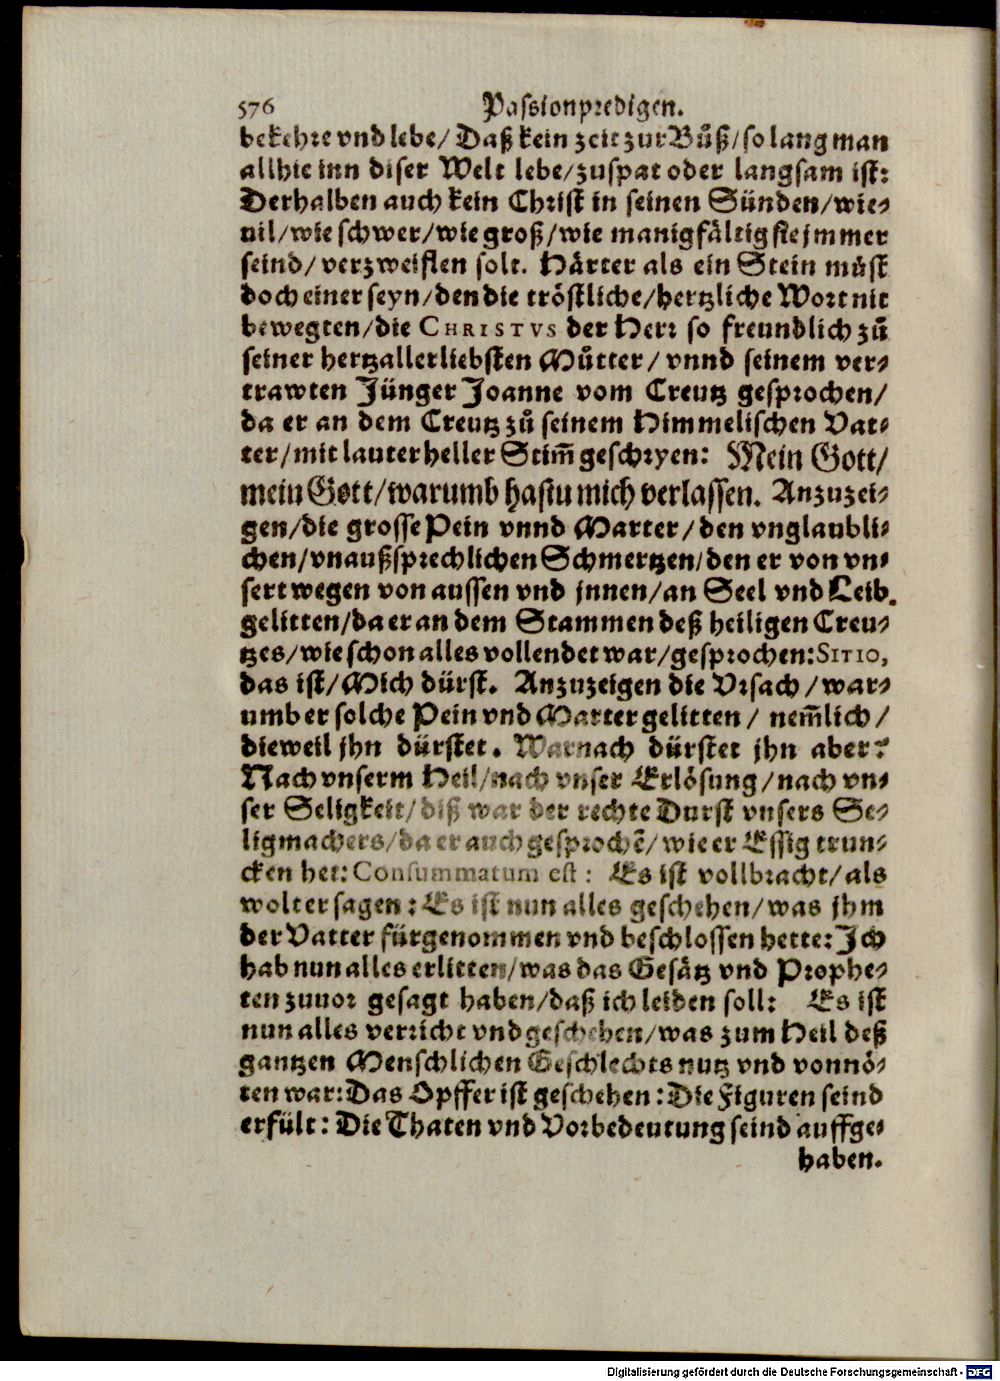 576 Passionpredigen.
bekehre vnd lebe/ Daß kein zeit zur Bůß/ so lang man
allhie inn diser Welt lebe/ zuspat oder langsam ist:
Derhalben auch kein Christ in seinen Sünden/ wie-
uil/ wie schwer/ wie groß/ wie manigfåltig sie jmmer
seind/ verzweiflen solt. Hårter als ein Stein můst
doch einer seyn/ den die tröstliche/ hertzliche Wort nit
bewegten/ die CHRISTVS der Herr so freundlich zů
seiner hertzallerliebsten Můtter/ vnnd seinem ver-
trawten Jünger Joanne vom Creutz gesprochen/
da er an dem Creutz zů seinem Himmelischen Vat-
ter/ mit lauter heller Stim̃ geschryen: Mein Gott/
mein Gott/ warumb hastu mich verlassen. Anzuzei-
gen/ die grosse Pein vnnd Marter/ den vnglaubli-
chen/ vnaußsprechlichen Schmertzen/ den er von vn-
sert wegen von aussen vnd jnnen/ an Seel vnd Leib.
gelitten/ da er an dem Stammen deß heiligen Creu-
tzes/ wie schon alles vollendet war/ gesprochen: SITIO,
das ist/ Mich dürst. Anzuzeigen die Vrsach/ war-
umb er solche Pein vnd Marter gelitten/ nem̃lich/
dieweil jhn dürstet. Warnach dürstet jhn aber?
Nach vnserm Heil/ nach vnser Erlösung/ nach vn-
ser Seligkeit/ diß war der rechte Durst vnsers Se-
ligmachers/ da er auch gesprochẽ/ wie er Essig trun-
cken het: Consummatum est: Es ist vollbracht/ als
wolter sagen: Es ist nun alles geschehen/ was jhm
der Vatter fürgenommen vnd beschlossen hette: Ich
hab nun alles erlitten/ was das Gesåtz vnd Prophe-
ten zuuor gesagt haben/ daß ich leiden soll: Es ist
nun alles verricht vnd geschehen/ was zum Heil deß
gantzen Menschlichen Geschlechts nutz vnd vonnö-
ten war: Das Opffer ist geschehen: Die Figuren seind
erfült: Die Thaten vnd Vorbedeutung seind auffge-
haben.
Digitalisierung gefördert durch die Deutsche Forschungsgemeinschaft - DFG